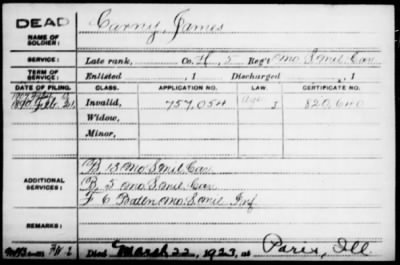 DEAD
NAME OF SOLDIER:
Carny, James
SERVICE:
Late rank, Co. H, 5 Reg't Mo S Mil Cav
TERM OF SERVICE:
Enlisted , 1 Discharged , 1
DATE OF FILING. CLASS. APPLICATION NO. LAW. CERTIFICATE NO.
1890 Feb. Invalid, 757.054 820.640
Widow,
Minor,
ADDITIONAL SERVICES:
B. 13 Mo. S mil Cav
B. 5 Mo S mil Cav
F 6 Batln Mo S mil Inf
REMARKS:
Died March 22, 1923, at Paris, Ill.